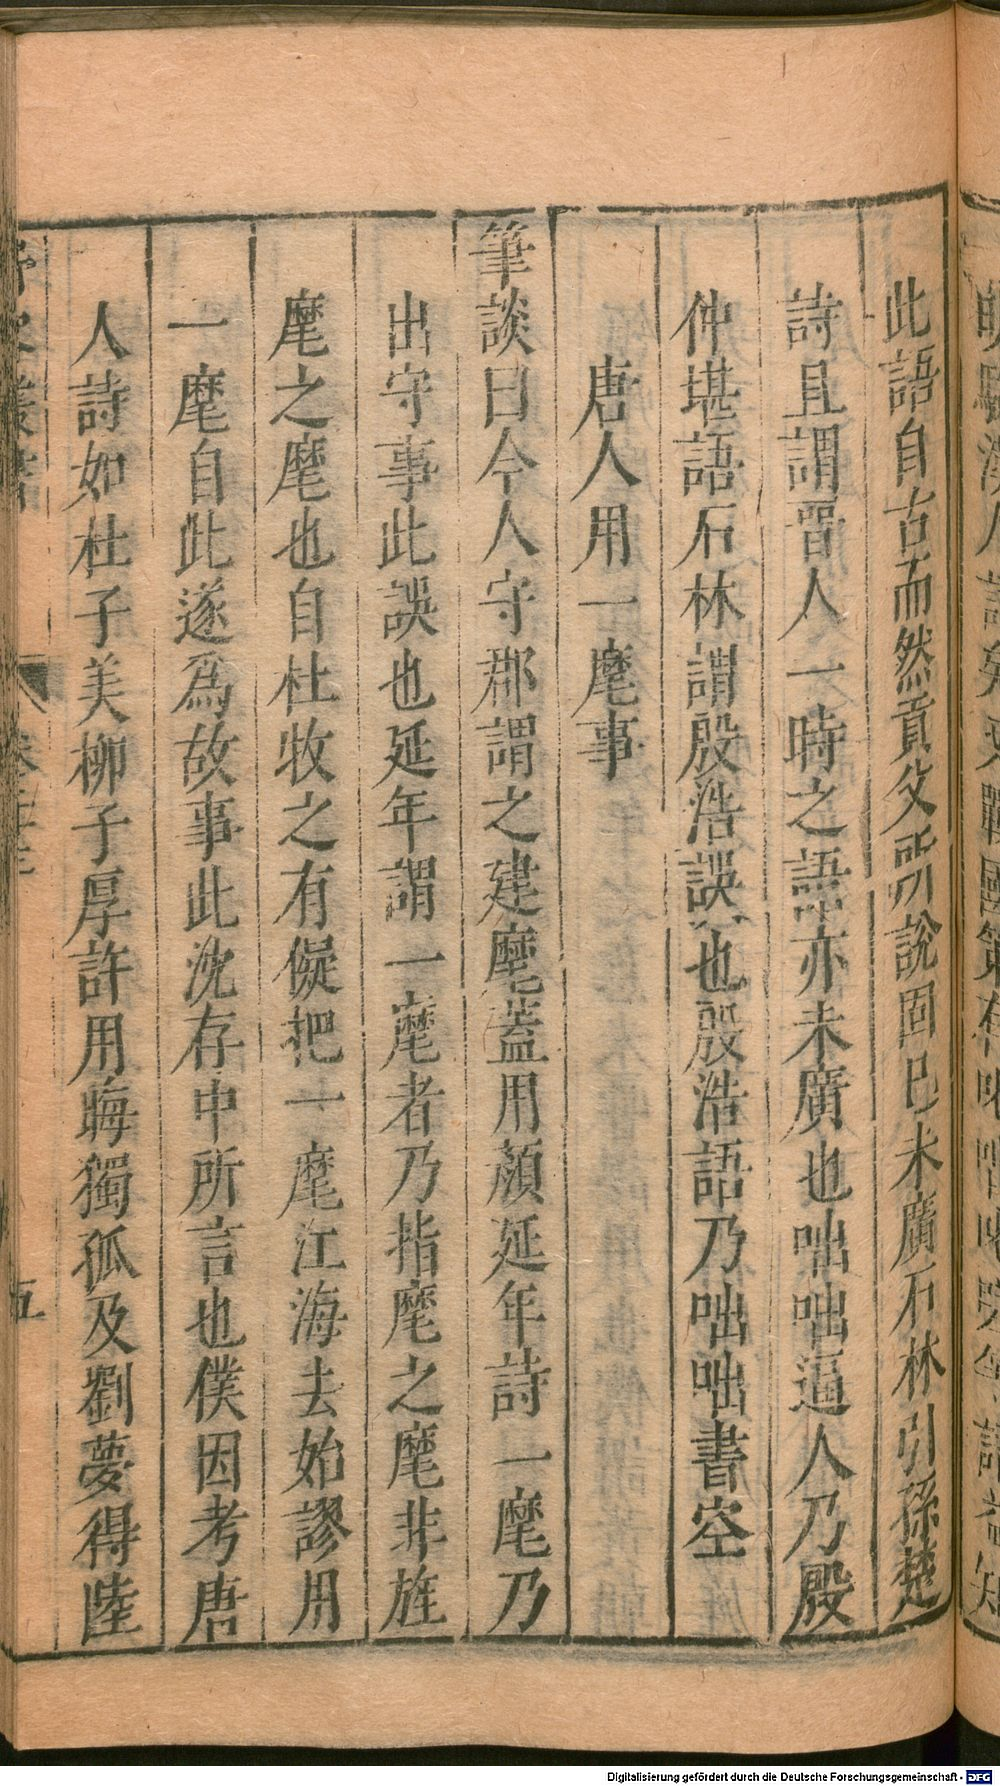 此語自古而然貢父所說固已未廣石林引孫楚
詩且謂晋人一時之語亦未廣也咄咄逼人乃殷
仲堪語石林謂殷浩誤也殷浩語乃咄咄書空
唐人用一麾事
筆談曰今人守郡謂之建麾蓋用顏延年詩一麾乃
出守事此誤也延年謂一麾者乃指麾之麾非旌
麾之麾也自杜牧之有儗把一麾江海去始謬用
一麾自此遂爲故事此沈存中所言也僕因考唐
人詩如杜子美柳子厚許用晦獨孤及劉夢得陸
五
Digitalisierung gefördert durch die Deutsche Forschungsgemeinschaft - DFG